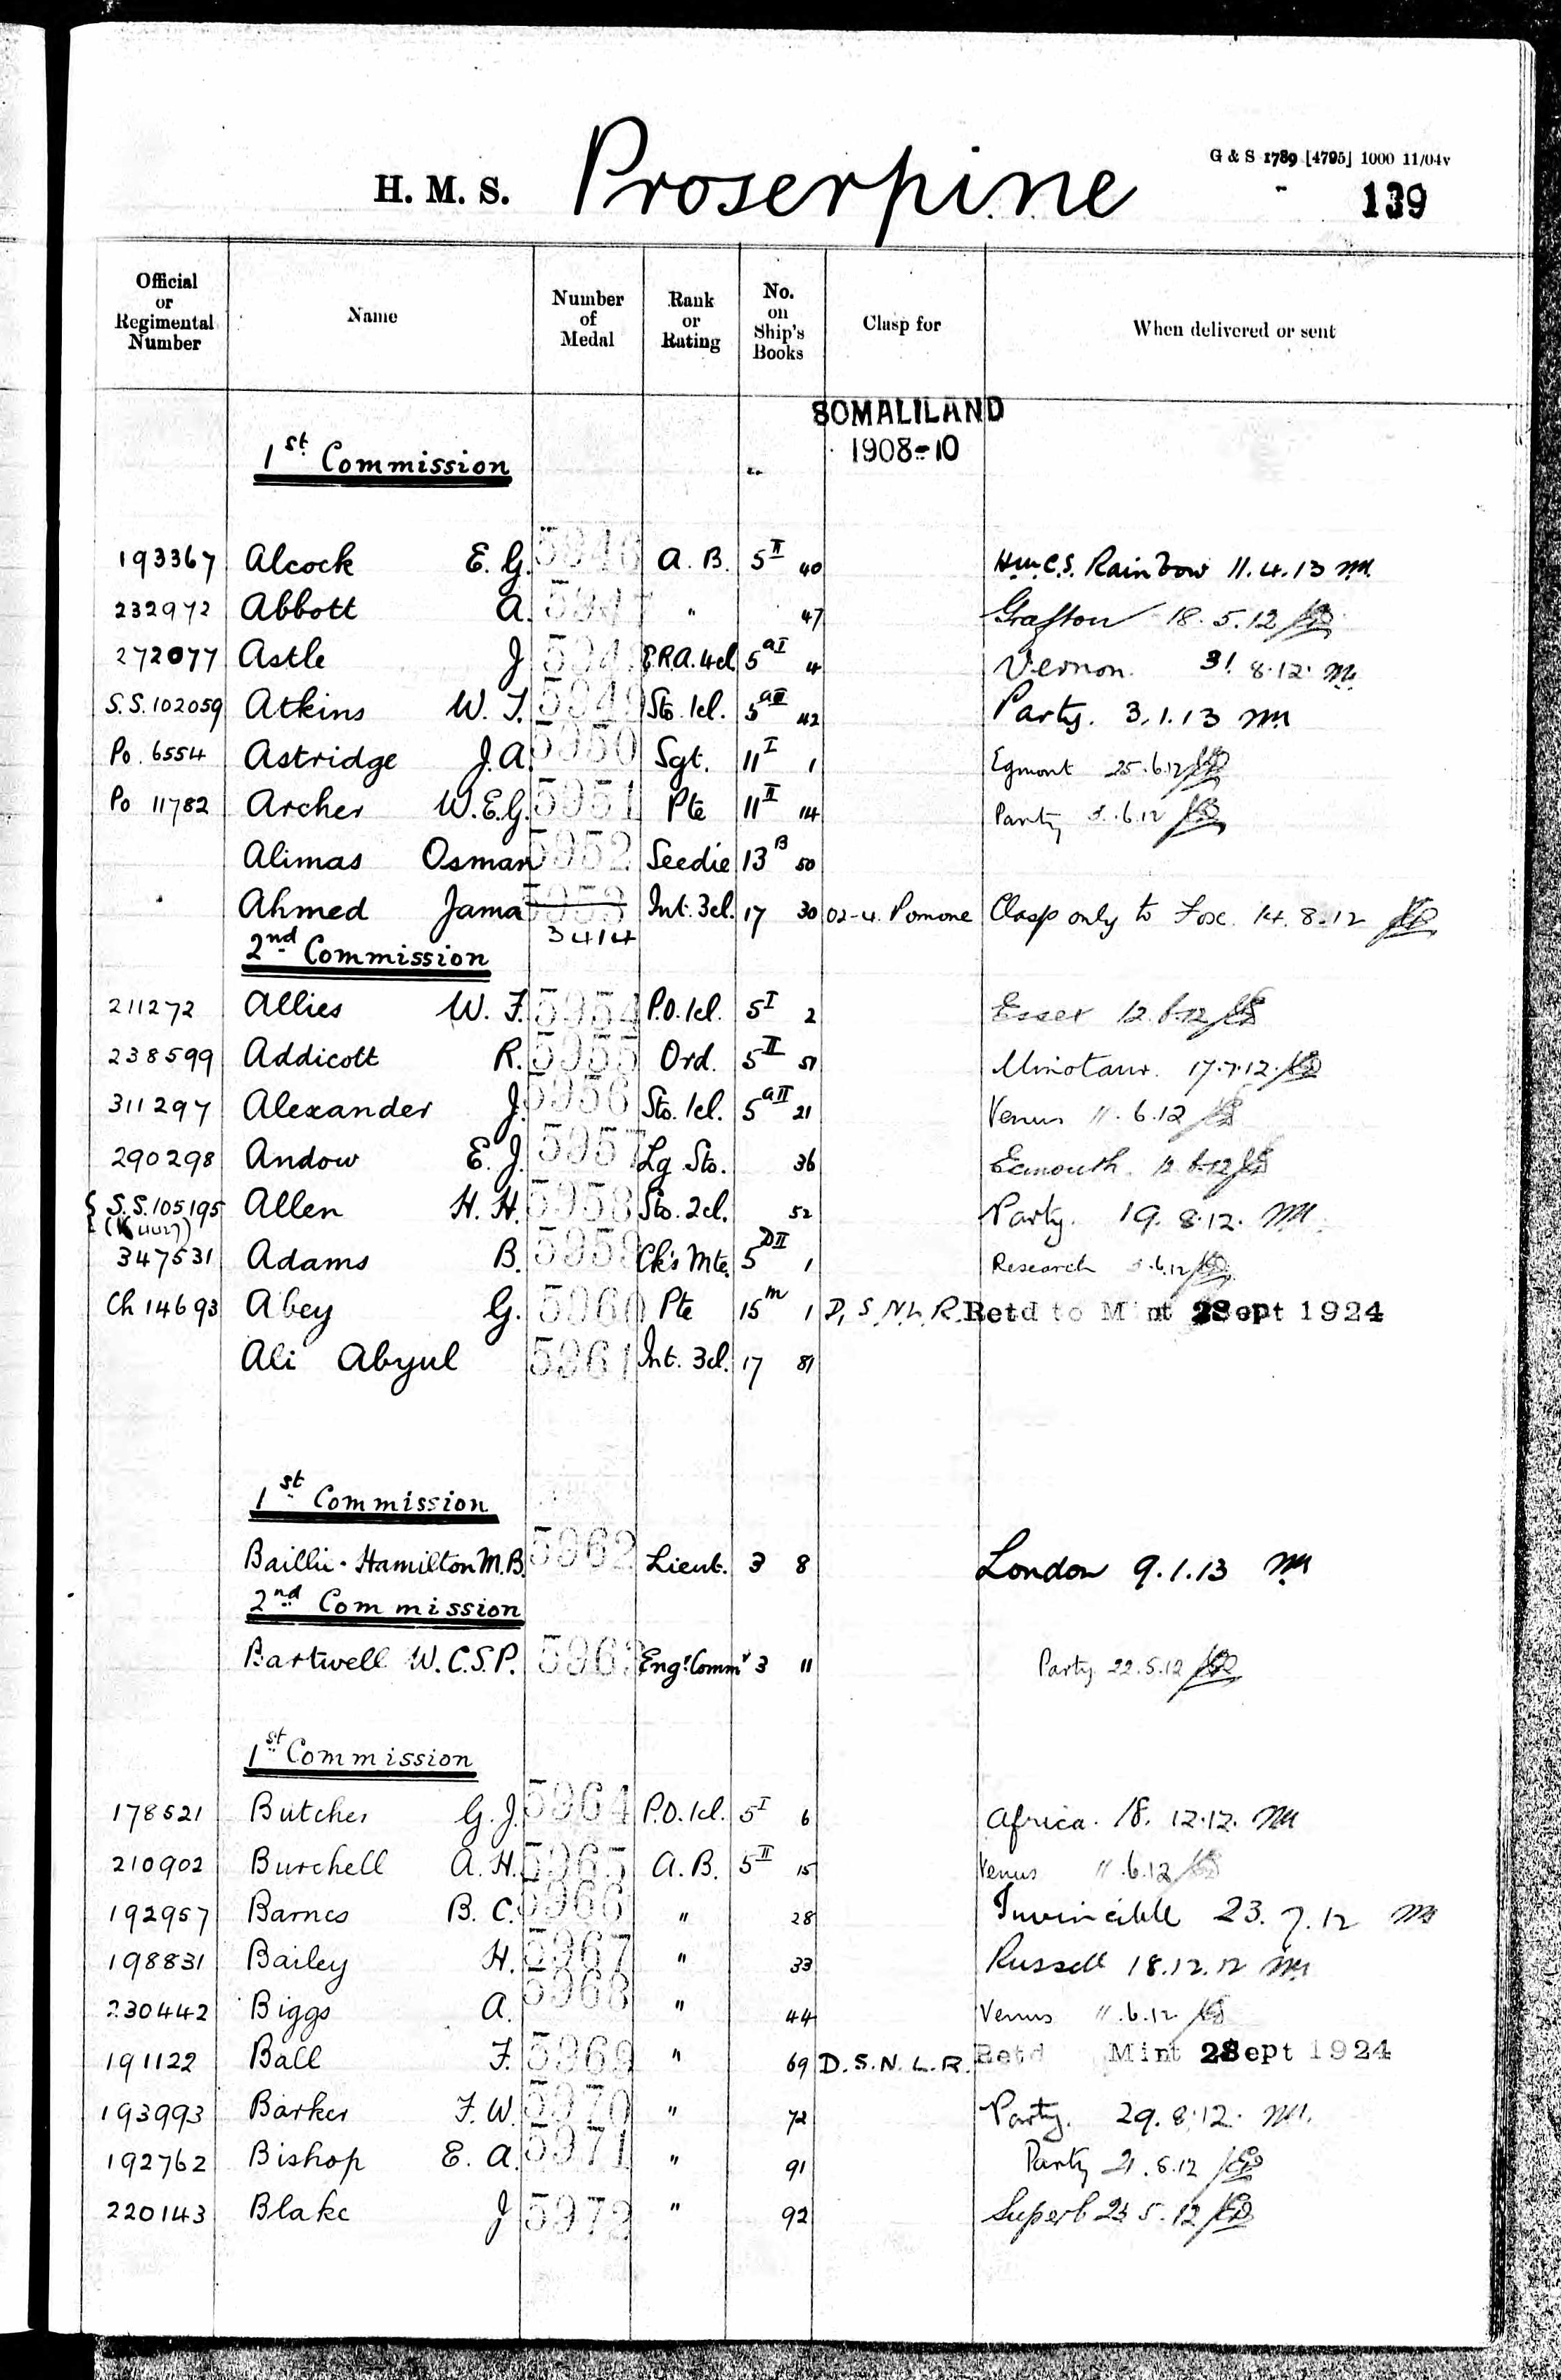 G & S 1789 [4795] 1000 11/04v
H. M. S. Proserpine 139
Official or Regimental Number Name Number of Medal Rank or Rating No. on Ship's Books Clasp for When delivered or sent
SOMALILAND
1908-10
1st Commission
193367 Alcock E. G. 5946 A. B. 5 II 40 H.M.C.S. Rainbow 11.4.13
232972 Abbott A. 5947 " 47 Grafton 18.5.12
272077 Astle J 594 E.R.A. 4cl 5 aI 4 Vernon. 31 8.12.
S.S. 102059 Atkins W. T. 5949 Sto. 1cl. 5 aII 42 Party. 3.1.13
Po. 6554 Astridge J. A. 5950 Sgt. 11 I 1 Egmont 25.6.12
Po 11782 Archer W.E.G. 5951 Pte 11 II 14 Party .6.12
Alimas Osman 5952 Seedie 13 B 50
Ahmed Jama 5953 Int. 3cl. 17 30 02-4. Pomone Clasp only to Fox. 14.8.12
3414
2nd Commission
211272 Allies W. F. 5954 P.O. 1cl. 5 I 2 Essex 12.6.12
238599 Addicott R. 5955 Ord. 5 II 51 Minotaur. 17.7.12.
311297 Alexander J. 5956 Sto. 1cl. 5 aII 21 Venus 11.6.12
290298 Andow E. J. 5957 Lg Sto. 36 Exmouth. 12.6.12
S.S. 105195 Allen H. H. 5958 Sto. 2cl. 52 Party. 19.8.12.
347531 Adams B. 5959 Ck's Mte. 5 DII 1 Research .6.12
Ch 14693 Abey G. 5960 Pte 15 m 1 D.S.N.L.R. Retd to Mint 28 Sept 1924
Ali Abyul 5961 Int. 3cl. 17 81
1st Commission
Baillie-Hamilton M.B. 5962 Lieut. 3 8 London 9.1.13
2nd Commission
Bartwell W.C.S.P. 596 Engr Commr 3 11 Party 22.5.12
1st Commission
178521 Butcher G. J. 5964 P.O. 1cl. 5 I 6 Africa. 18.12.12.
210902 Burchell A. H. 5965 A. B. 5 II 15 Venus 11.6.12
192957 Barnes B. C. 5966 " 28 Invincible 23.7.12
198831 Bailey H. 5967 " 33 Russell 18.12.12
230442 Biggs A. 5968 " 44 Venus 11.6.12
191122 Ball F. 5969 " 69 D.S.N.L.R. Retd Mint 28 Sept 1924
193993 Barker F. W. 5970 " 72 Party. 29.8.12.
192762 Bishop E. A. 5971 " 91 Party 21.6.12
220143 Blake J 5972 " 92 Superb 23 5.12